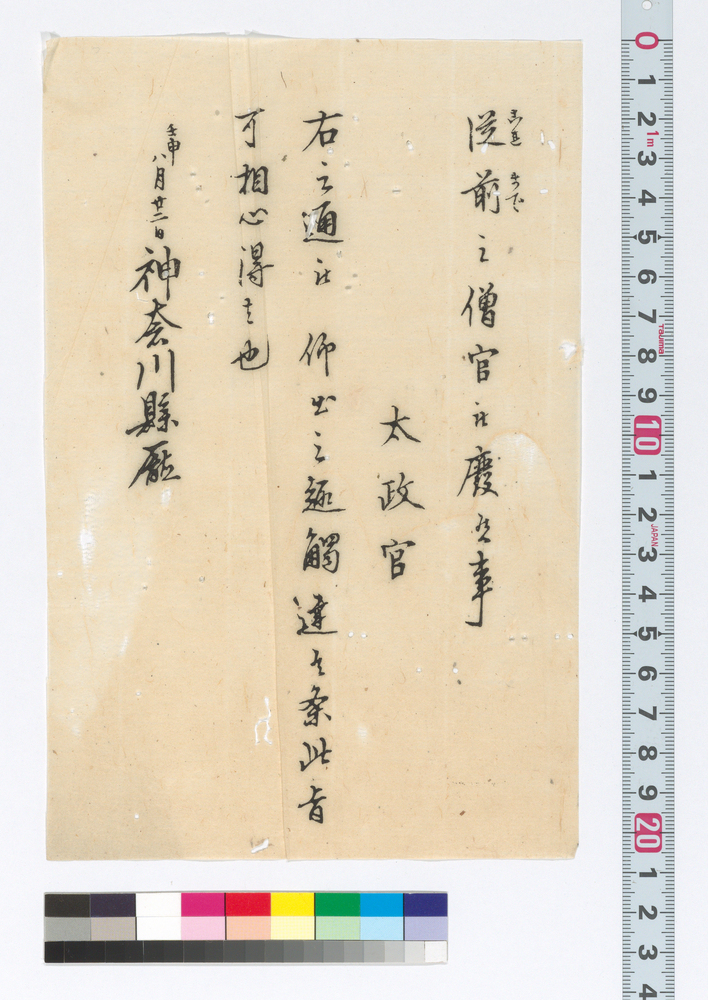 従前之僧官被廃候事
太政官
右之通被 仰出之趣触達候条此旨
可相心得者也
壬申
八月廿二日 神奈川縣廳
0
1
2
1m
3
4
5
6
7
Tajima
8
9
10
1
2
JAPAN
3
4
5
6
7
8
9
20
1
2
3
4